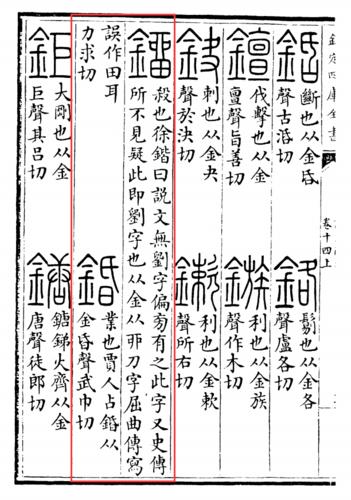 欽定四庫全書
卷十四上
銛
斷也从金昏
聲古活切
鉻
鬄也从金各
聲盧各切
伐擊也从金
亶聲旨善切
鏃
利也从金族
聲作木切
鈌
刺也从金夬
聲於決切
鏉
利也从金欶
聲所右切
鎦
殺也徐鍇曰説文無劉字偏旁有之此字又史傳
所不見疑此即劉字也从金从丣刀字屈曲傳寫
誤作田耳
力求切
錉
業也賈人占錉从
金昏聲武巾切
鉅
大剛也从金
巨聲其吕切
鎕
鎕銻火齊从金
唐聲徒郎切